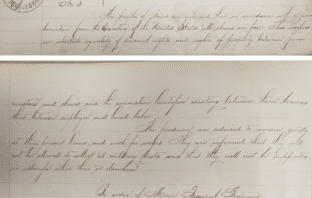 No. 3
The people of Texas are informed that in accordance with a pro-
clamation from the Executive of the United States "all slaves are free." This involves
an absolute equality of personal rights and rights of property between former
masters and slaves and the connection heretofore existing between them becomes
that between employer and hired labor.
The freedmen are advised to remain quietly
at their present homes, and work for wages. They are informed that they will
not be allowed to collect at military posts and that they will not be supported
in idleness either there or elsewhere.
By order of Major General Granger